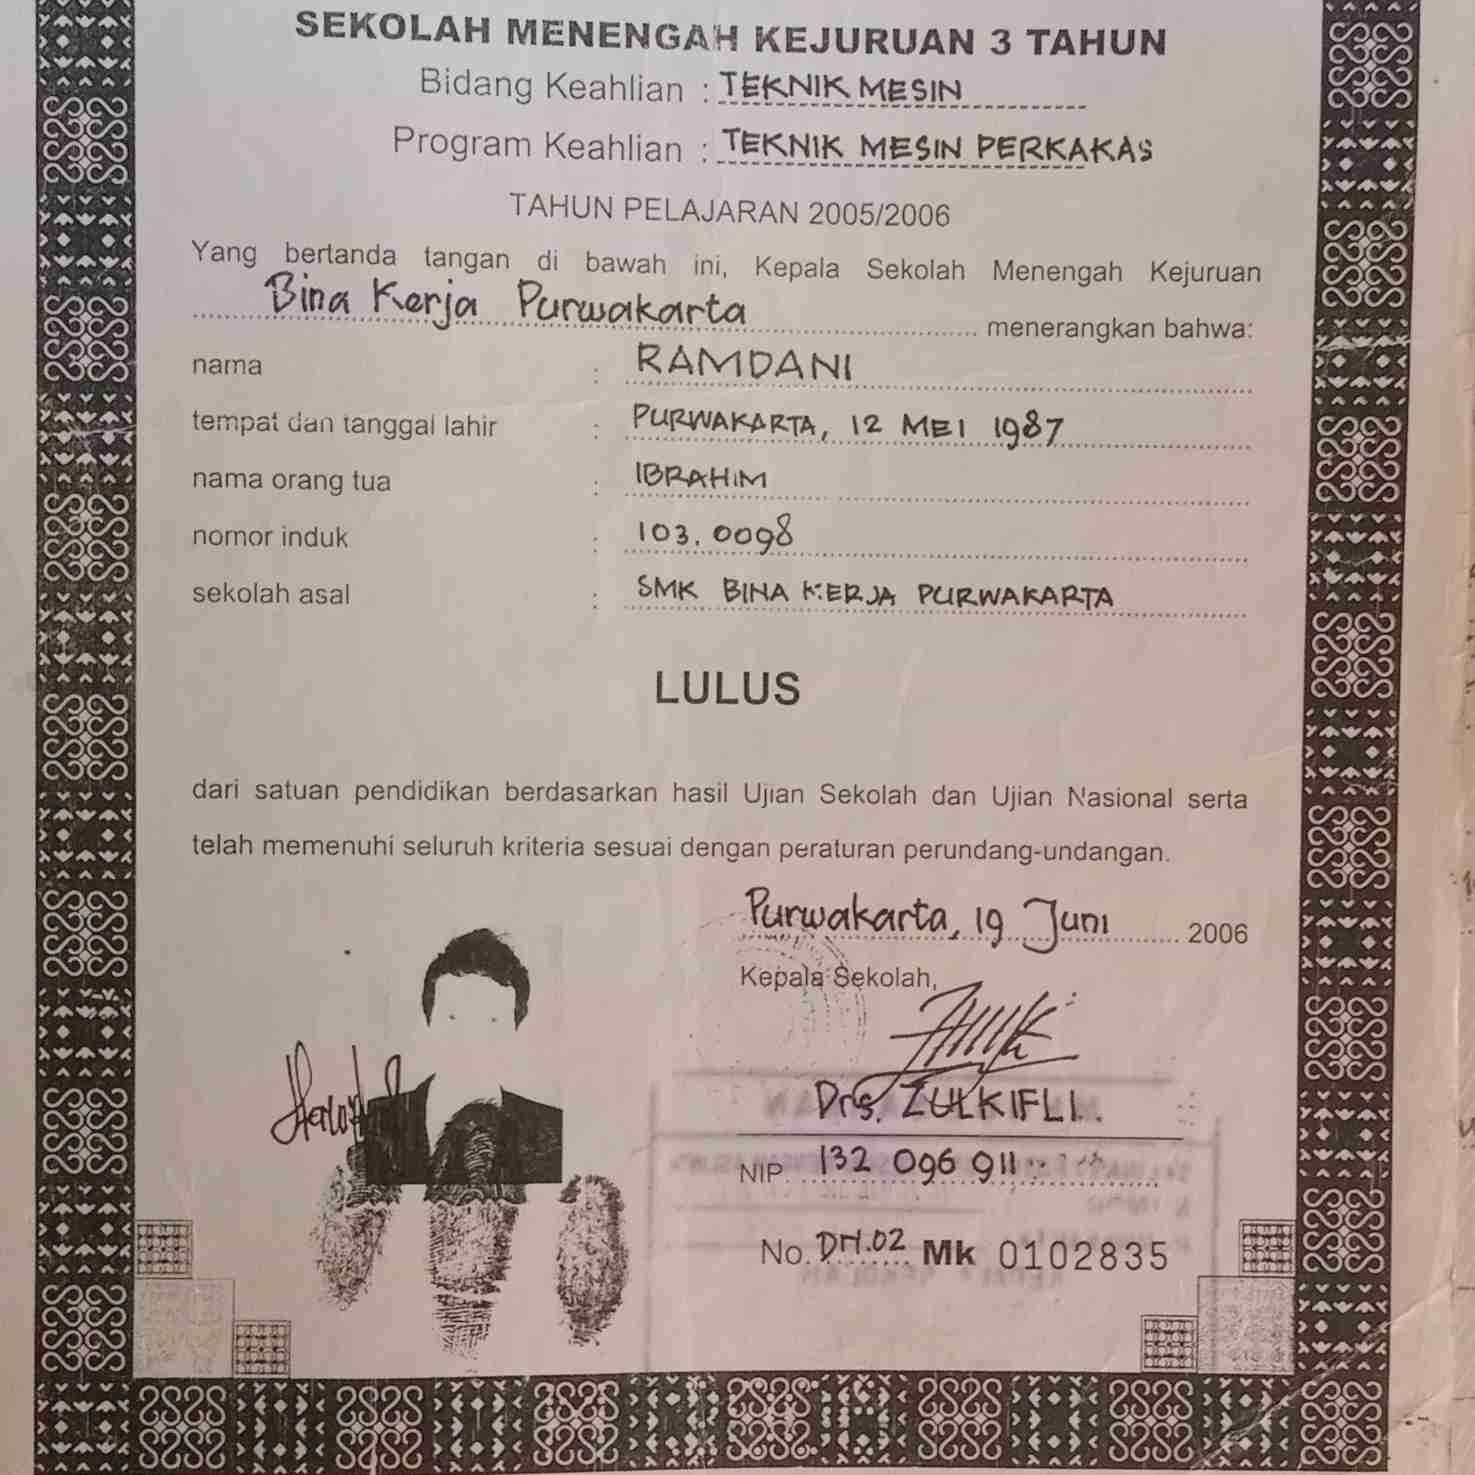 SEKOLAH MENENGAH KEJURUAN 3 TAHUN
Bidang Keahlian : TEKNIK MESIN
Program Keahlian : TEKNIK MESIN PERKAKAS
TAHUN PELAJARAN 2005/2006
Yang bertanda tangan di bawah ini, Kepala Sekolah Menengah Kejuruan
Bina Kerja Purwakarta menerangkan bahwa:
nama : RAMDANI
tempat dan tanggal lahir : PURWAKARTA, 12 MEI 1987
nama orang tua : IBRAHIM
nomor induk : 103.0098
sekolah asal : SMK BINA KERJA PURWAKARTA
LULUS
dari satuan pendidikan berdasarkan hasil Ujian Sekolah dan Ujian Nasional serta
telah memenuhi seluruh kriteria sesuai dengan peraturan perundang-undangan.
Purwakarta, 19 Juni 2006
Kepala Sekolah,
Drs. ZULKIFLI.
NIP. 132 096 911
No. DH.02 Mk 0102835